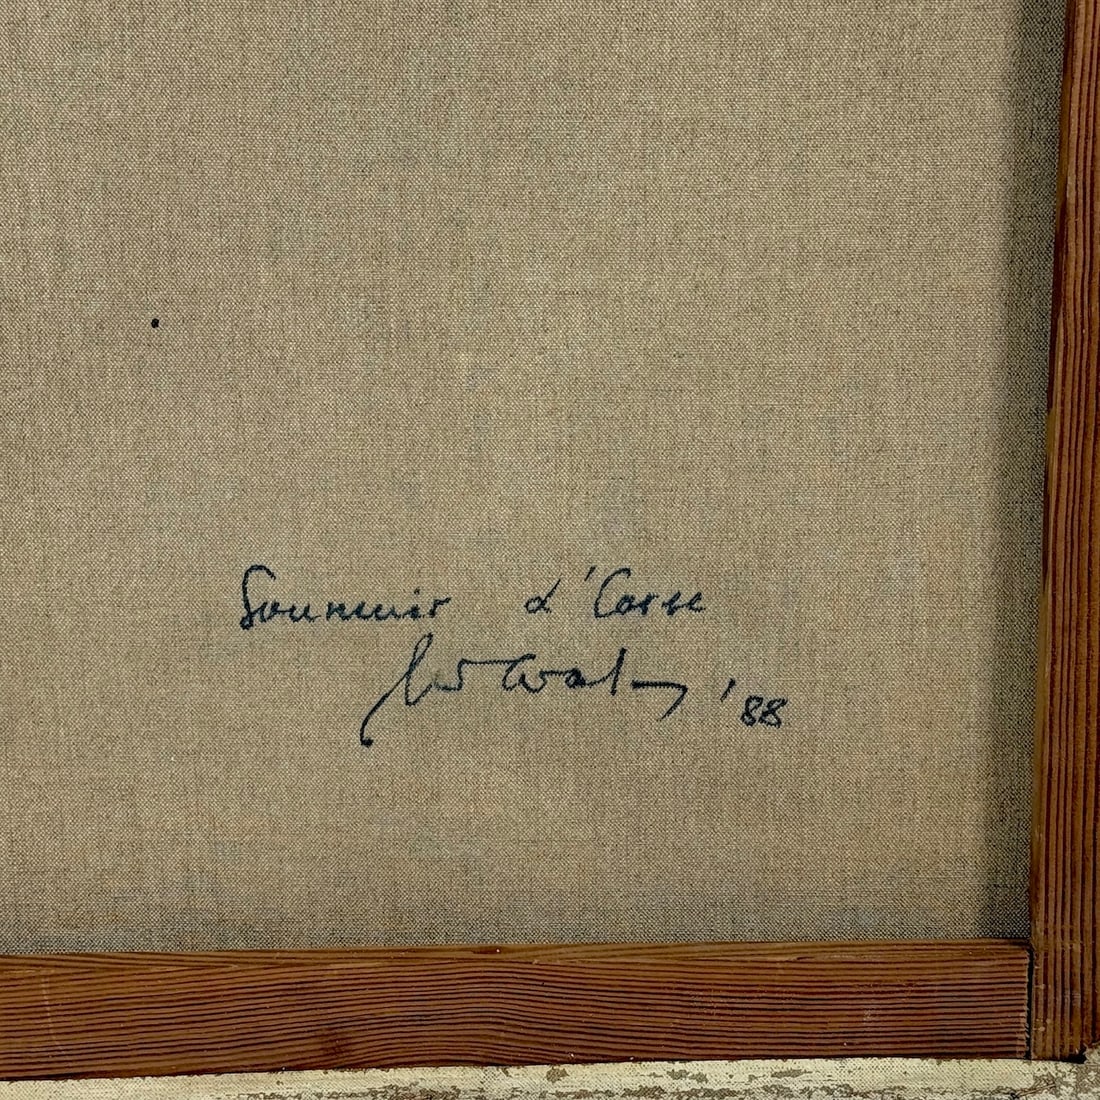 Souvenir d'Corse
'88